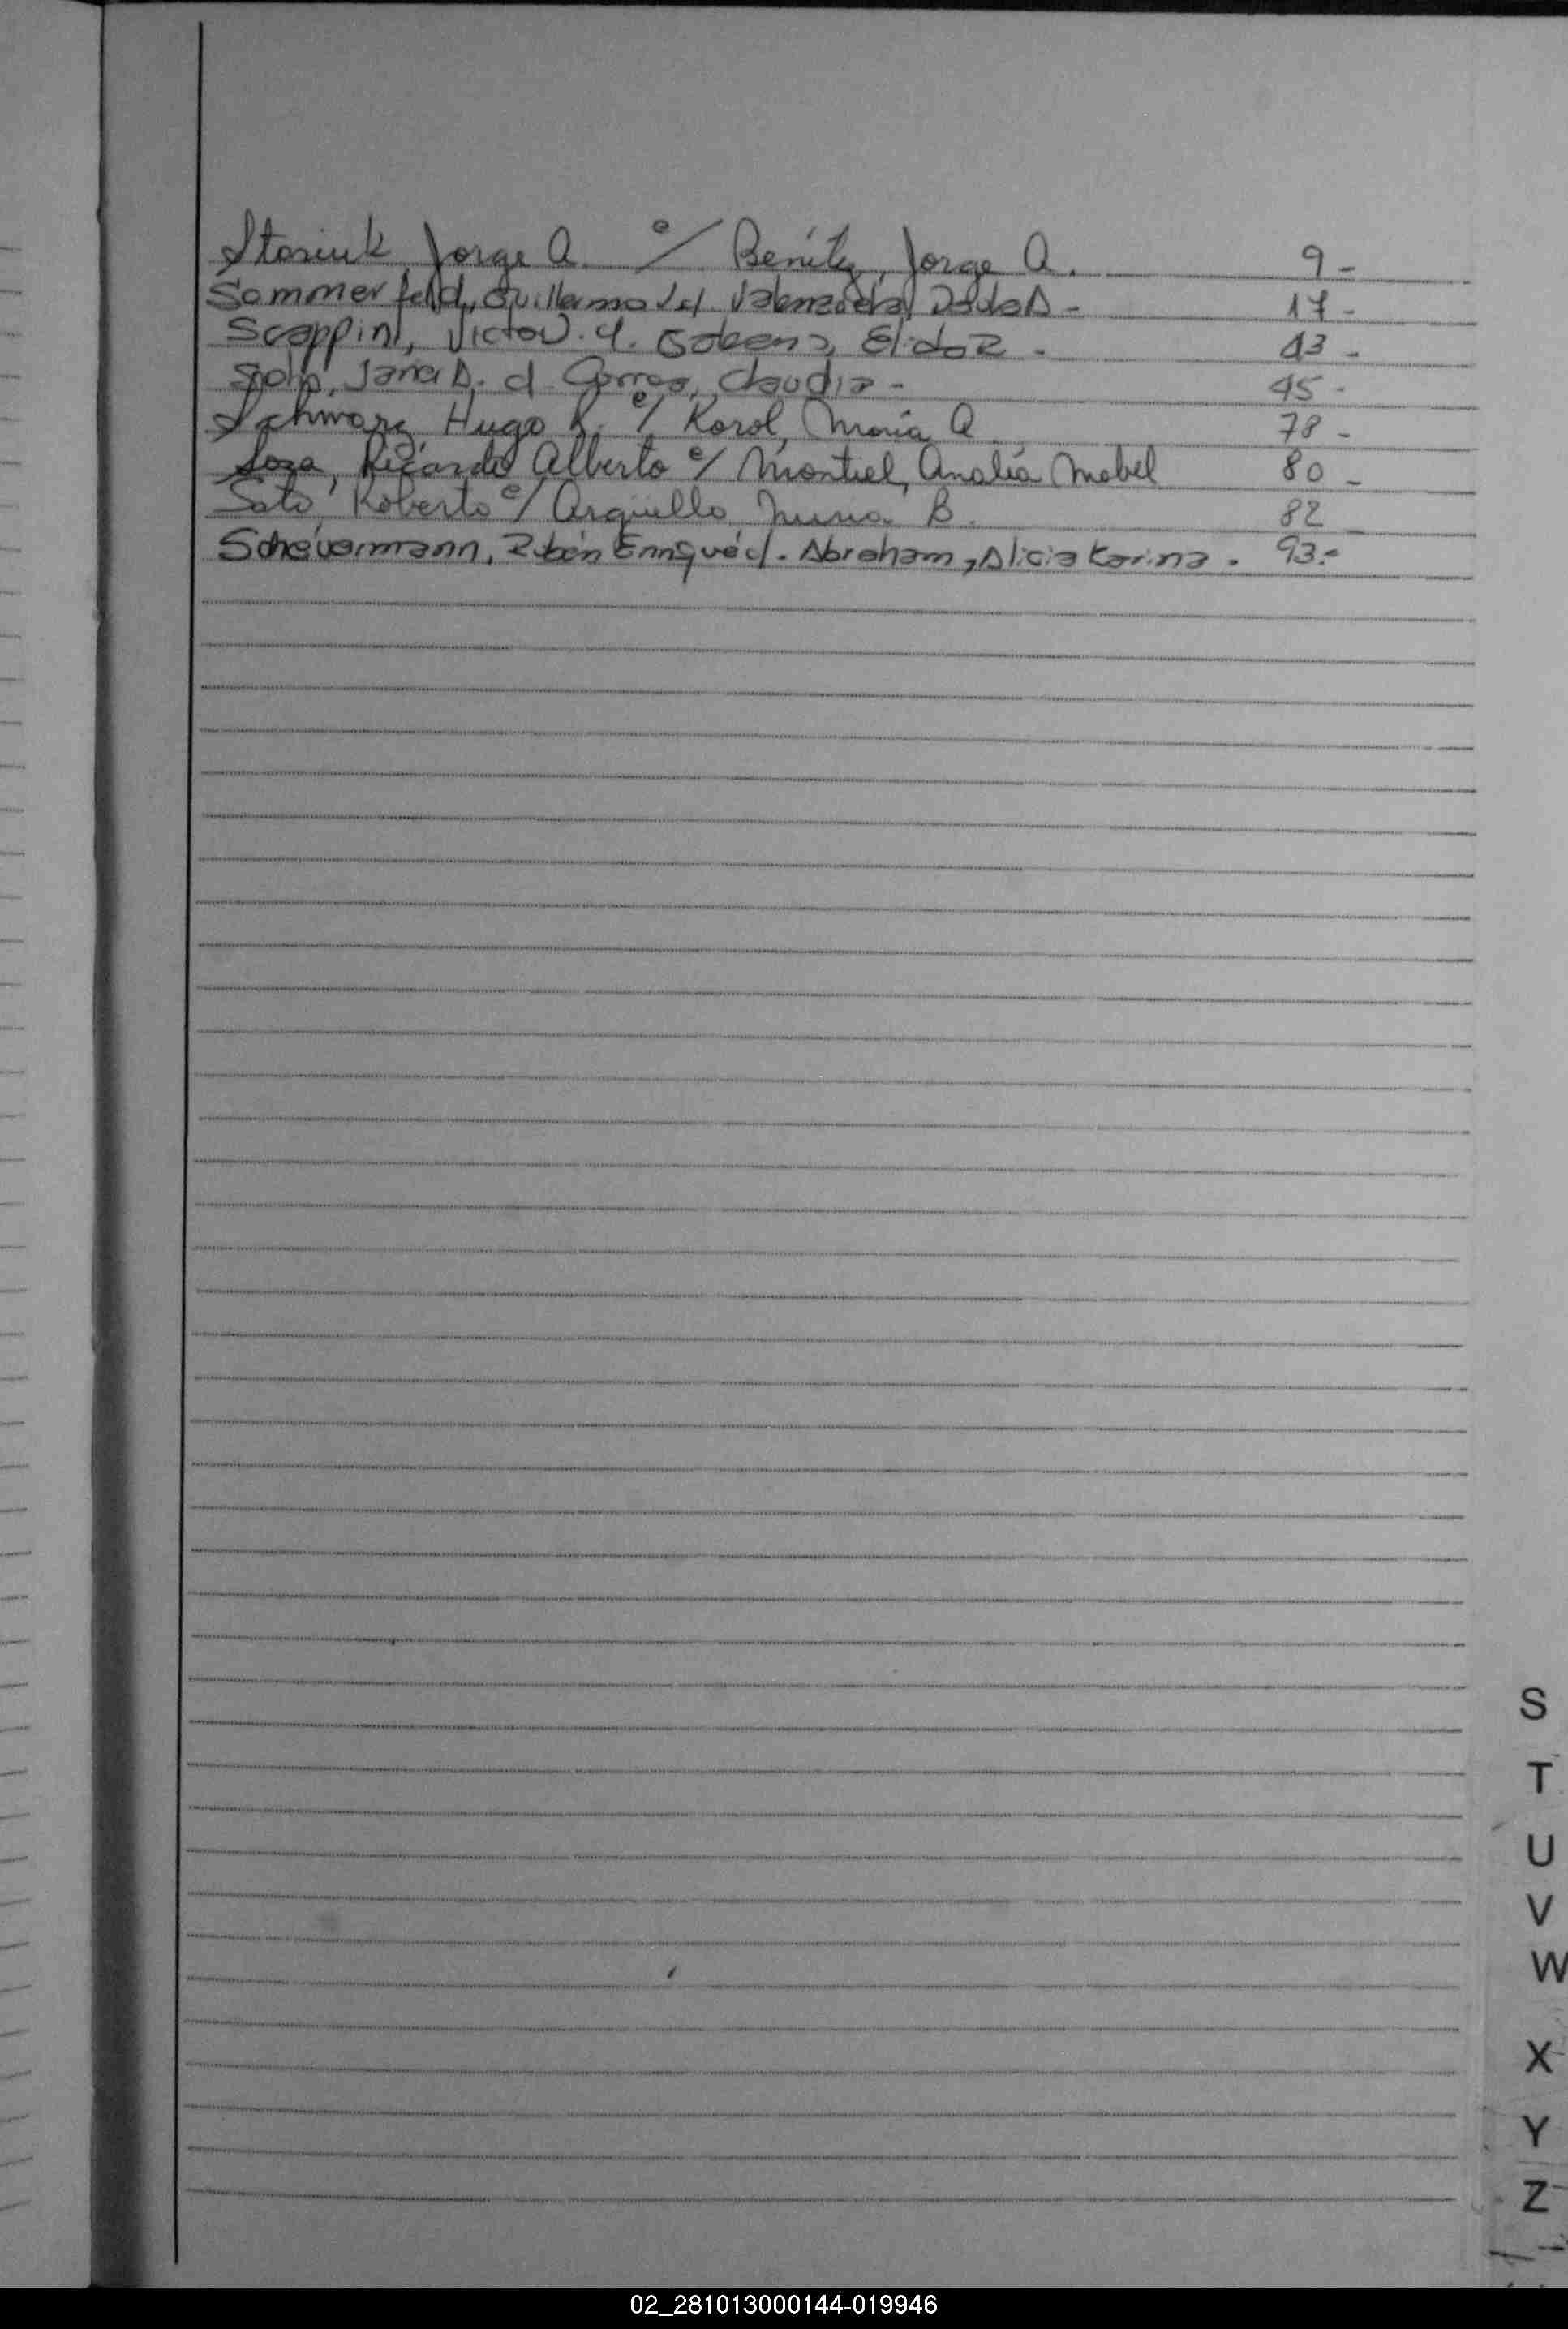 Stasiuk, Jorge A. c/ Benítez, Jorge A. 9-
Sommerfeld, Guillermo J c/. Valenzuela, D - 17-
Scappini, Victor. c/. Elida R - 43-
D. c/ Correa, Claudia - 45-
Schwarz, Hugo R. c/ Korol, María A 78-
Soza, Ricardo Alberto c/ Montiel, Analía Mabel 80-
Soto, Roberto c/ Argüello B. 82
Scheuermann, Rubén Enrique c/. Abraham, Alicia Karina. 93.-
S
T
U
V
W
X
Y
Z
02_281013000144-019946